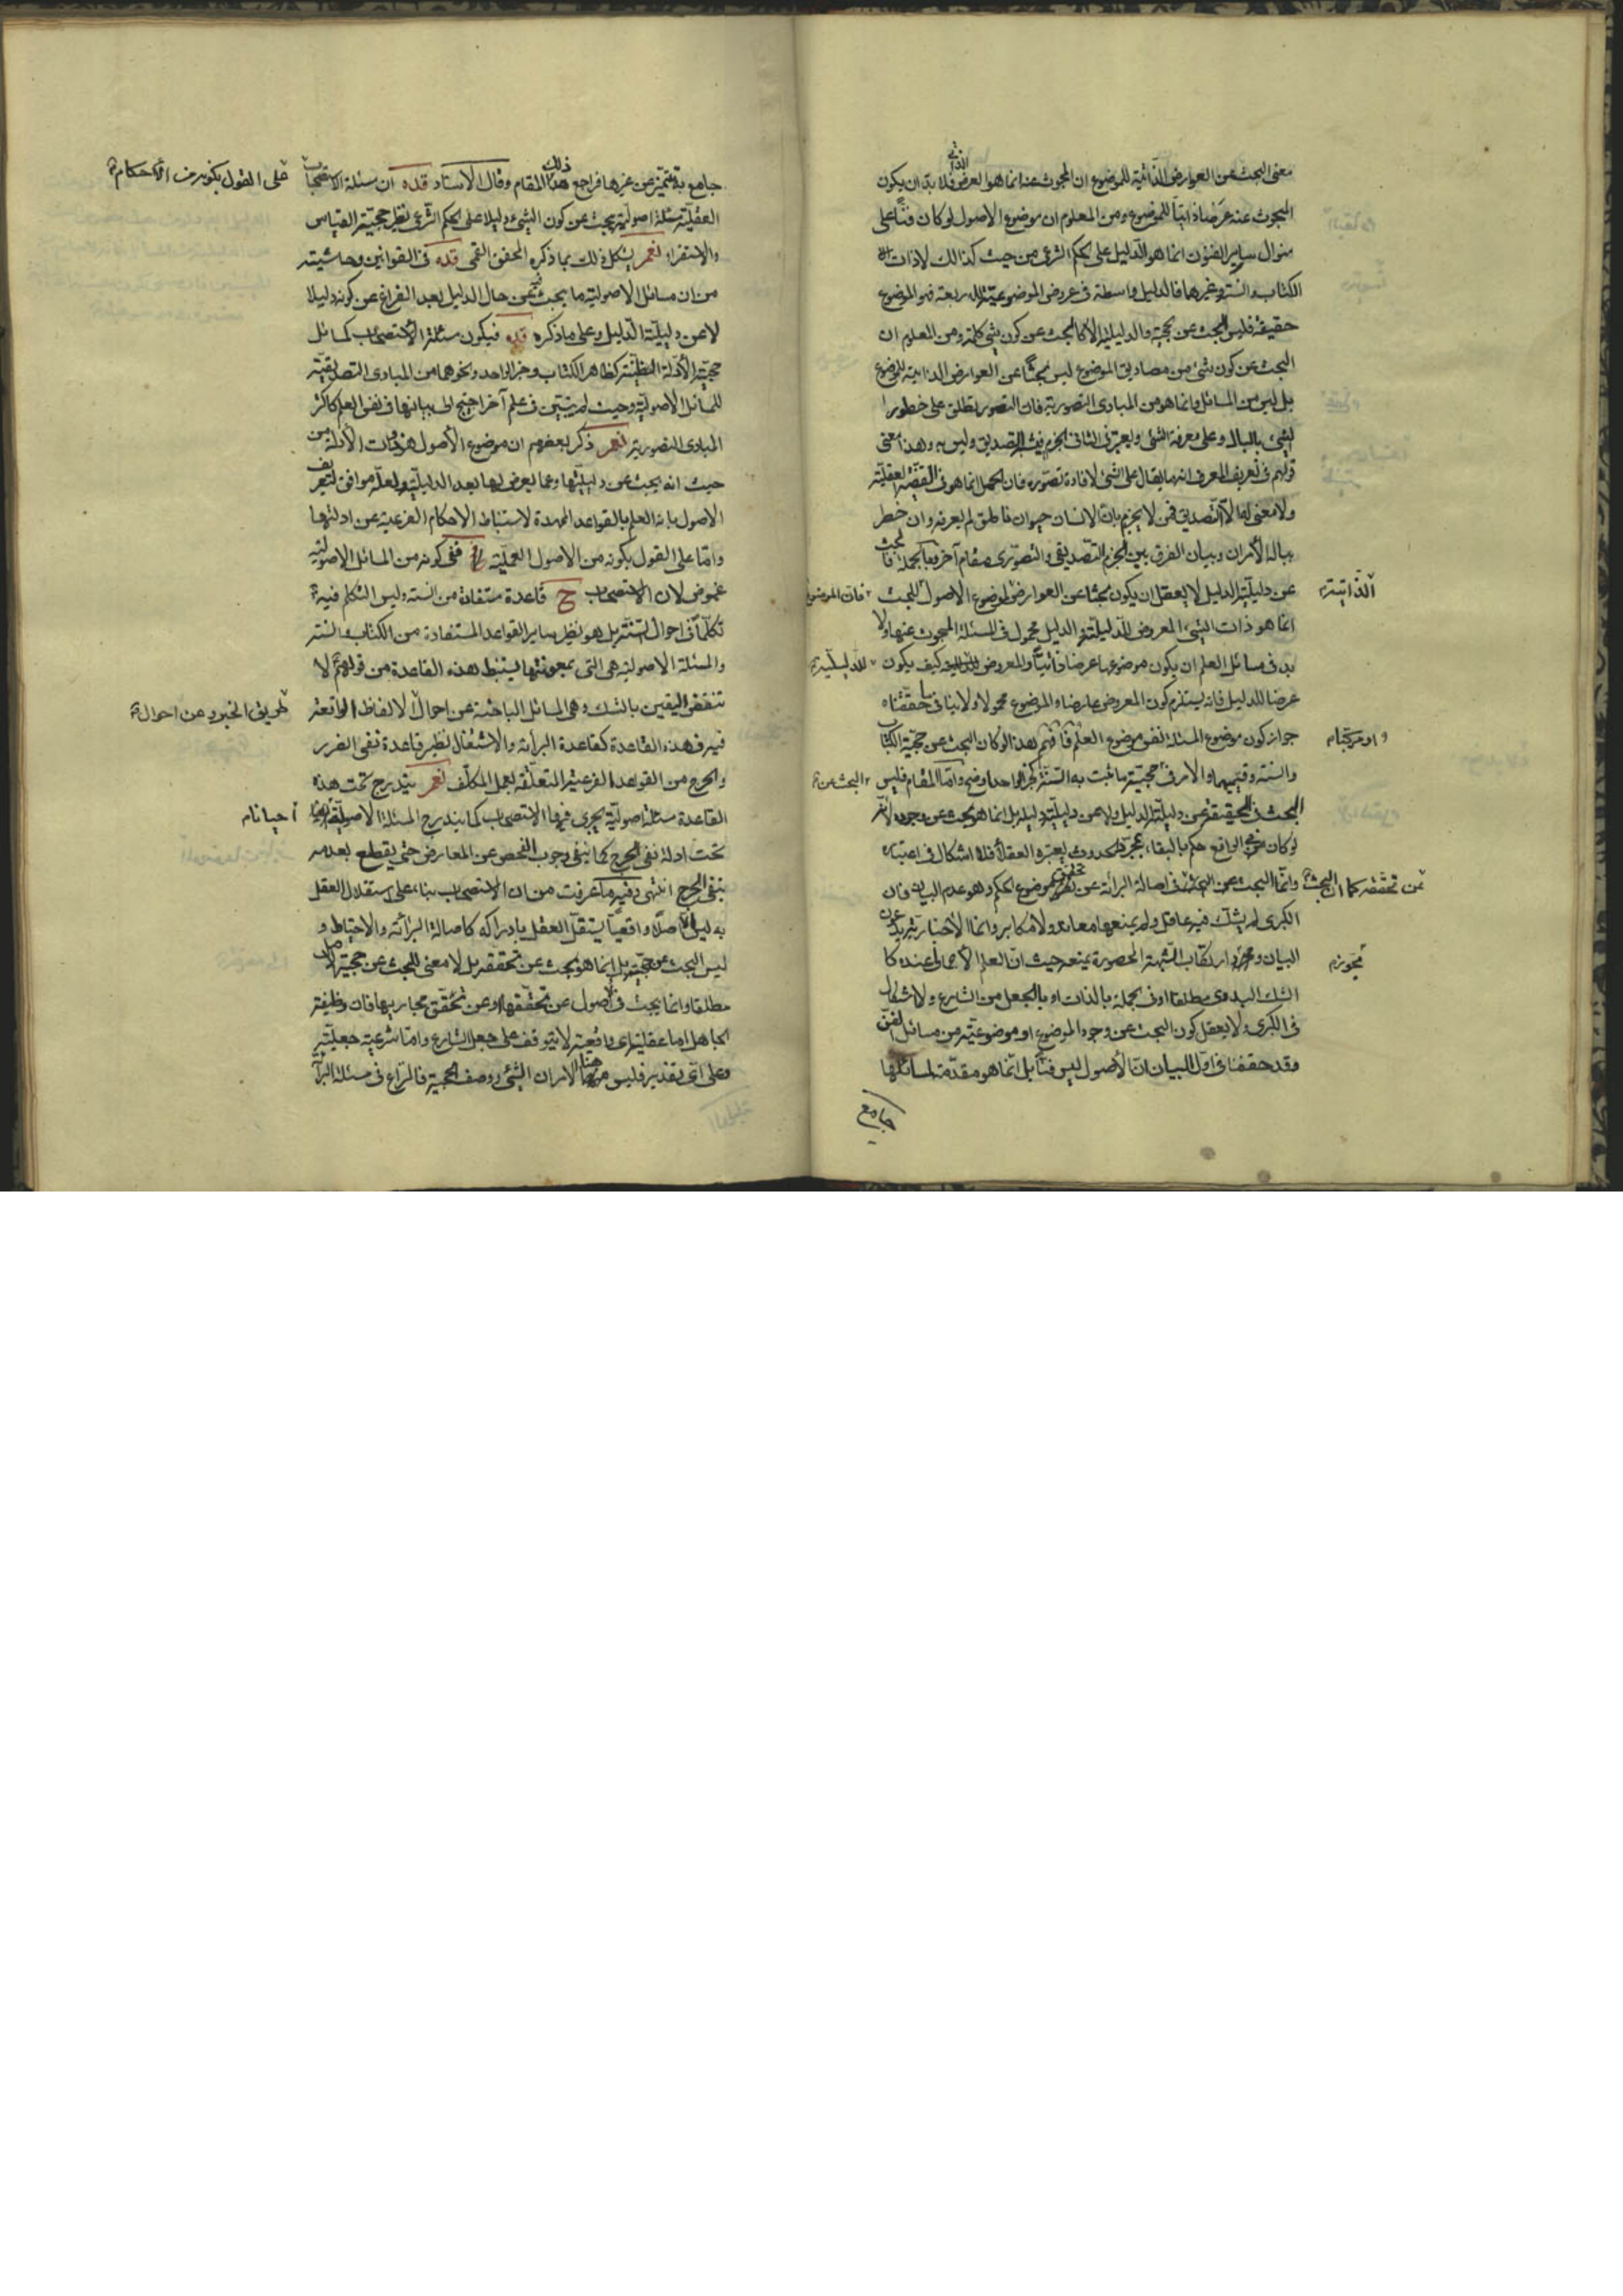 معنى البحث عن العوارض الذاتية للموضوع ان المبحوث عنه انما هو العرض الذاتي فلا بد ان يكون
المبحوث عنه عرضا ذاتيا للموضوع ومن المعلوم ان موضوع الاصول لو كان فنا على
منوال ساير الفنون انما هو الدليل على الحكم الشرعى من حيث كذلك لا ذات
الكتاب والسنة وغيرهما فالدليل واسطة فى عروض الموضوعية للاربعة فهو الموضوع
حقيقة فليس البحث عن حجية والدليلية الا كالبحث عن كون شئ كلمة ومن المعلوم ان
البحث عن كون شئ من مصاديق الموضوع ليس بحثا عن العوارض الذاتية للموضوع
بل ليس من المسائل وانما هو من المبادى التصورية فان التصور يطلق على خطور
الشئ بالبال وعلى معرفة الشئ ويعتبر فى الثانى الجزم التصديق وليس به وهذا معنى
قولهم فى تعريف المعرف انه ما يقال على الشئ لافادة تصوره فان الحمل انما هو فى القضية العقلية
ولا معنى لها الا التصديق فمن لا يجزم بان الانسان حيوان ناطق لم يعرفه وان خطر
بباله الامران وبيان الفرق بين الجزم التصديقى والتصورى مقام آخر وبالجملة فالبحث
عن دليلية الدليل لا يعقل ان يكون بحثا عن العوارض الذاتية لموضوع الاصول فان الموضوع للبحث
انما هو ذات الشئ المعروض للدليلية والدليل محمول فى المسئلة المبحوث عنها ولا
بد فى مسائل العلم ان يكون موضوعها عرضا ذاتيا والمعروض للدليلية كيف يكون
عرضا للدليل فانه يستلزم كون المعروض عارضا والموضوع محمولا ولا ينافى ما حققناه
جواز كون موضوع المسئلة نفس موضوع العلم فافهم هذا لو كان البحث عن حجية الكتاب
والسنة وقسيميهما والا فى حجية ما ثبت به السنة كخبر الواحد اوضح واما المقام فليس البحث عن
البحث فى الحقيقة عن دليلية الدليل ولا عن دليلية دليل بل انما هو بحث عن وجوده لانه
لو كان فى الواقع حكم بالبقاء بمجرد الحدوث يعتبره العقلاء فلا اشكال فى اعتباره
وانما البحث عن تحققه كما ان البحث فى اصالة البرائة عن تحقق موضوع الحكم وهو عدم البيان فان
الكبرى لم يشك فيه عاقل ولم يمنعها معاند ولا مكابر وانما الاخبارى يريد عدم
البيان ومجوز ارتكاب الشبهة المحصورة يمنعه حيث ان العلم الاجمالى عنده كا
الشك البدوى مطلقا او فى الجملة بالذات او بالجعل من الشارع ولا اشكال
فى الكبرى ولا يعقل كون البحث عن وجود الموضوع او موضوعيته من مسائل الفن
وقد حققنا فى اول البيان ان الاصول ليس فنا بل انما هو مقدمة لمسائلها
جامع
الذاتية
او مركبا
عن تحققه كما ان البحث
مجوزه
جامع به متميز عن غيرها فراجع ذلك المقام وقال الاستاد قده ان مسئلة الاستصحاب
على القول بكونه من الاحكام
العقلية مسئلة اصولية يبحث عن كون الشئ دليلا على الحكم الشرعى نظير حجية القياس
والاستقراء نعم يشكل ذلك بما ذكره المحقق القمى قده فى القوانين وحاشيته
من ان مسائل الاصولية ما يبحث فيه عن حال الدليل بعد الفراغ عن كونه دليلا
لا عن دليلية الدليل وعلى ما ذكره قده فيكون مسئلة الاستصحاب كمسائل
حجية الادلة الظنية كظاهر الكتاب وخبر الواحد ونحوهما من المبادى التصديقية
للمسائل الاصولية وحيث لم يتبين فى علم آخر احتيج الى بيانها فى نفس العلم كاكثر
المبادى التصورية نعم ذكر بعضهم ان موضوع الاصول هو ذوات الادلة من
حيث انه يبحث عن دليليتها وعما يعرض لها بعد الدليلية ولعله موافق لتعريف
الاصول بانه العلم بالقواعد الممهدة لاستنباط الاحكام الفرعية عن ادلتها
واما على القول بكونه من الاصول العملية ففى كونه من المسائل الاصولية
غموض لان الاستصحاب ح قاعدة مستفادة من السنة وليس التكلم فيه
تكلما فى احوال السنة بل هو نظير ساير القواعد المستفادة من الكتاب والسنة
والمسئلة الاصولية هى التى بمعونتها يستنبط هذه القاعدة من قولهم لا
تنقض اليقين بالشك وهى المسائل الباحثة عن احوال الالفاظ الواقعة
طريق الخبر وعن احوال
فيه فهذه القاعدة كقاعدة البرائة والاشتغال نظير قاعدة نفى الضرر
والحرج من القواعد الفرعية المتعلقة بعمل المكلف نعم يندرج تحت هذه
القاعدة مسئلة اصولية يجرى فيها الاستصحاب كما يندرج المسئلة الاصولية
احيانا
تحت ادلة نفى الحرج كما ينفى وجوب الفحص عن المعارض حتى يقطع بعدمه
بنفى الحرج انتهى وفيه ما عرفت من ان الاستصحاب بناء على استقلال العقل
به ليس الا اصلا واقعيا يستقل العقل بادراكه كاصالة البرائة والاحتياط و
ليس البحث عن حجيته بل انما هو بحث عن تحققه بل لا معنى للبحث عن حجية الاصل
مطلقا وانما يبحث فى الاصول عن تحققها او عن تحقق مجاريها فان وظيفة
الجاهل اما عقلية اى واقعية لا يتوقف على جعل الشارع واما شرعية جعلية
وعلى اى تقدير فليس هنا الامران الشئ ووصف الحجية فالنزاع فى مسئلة البرائة